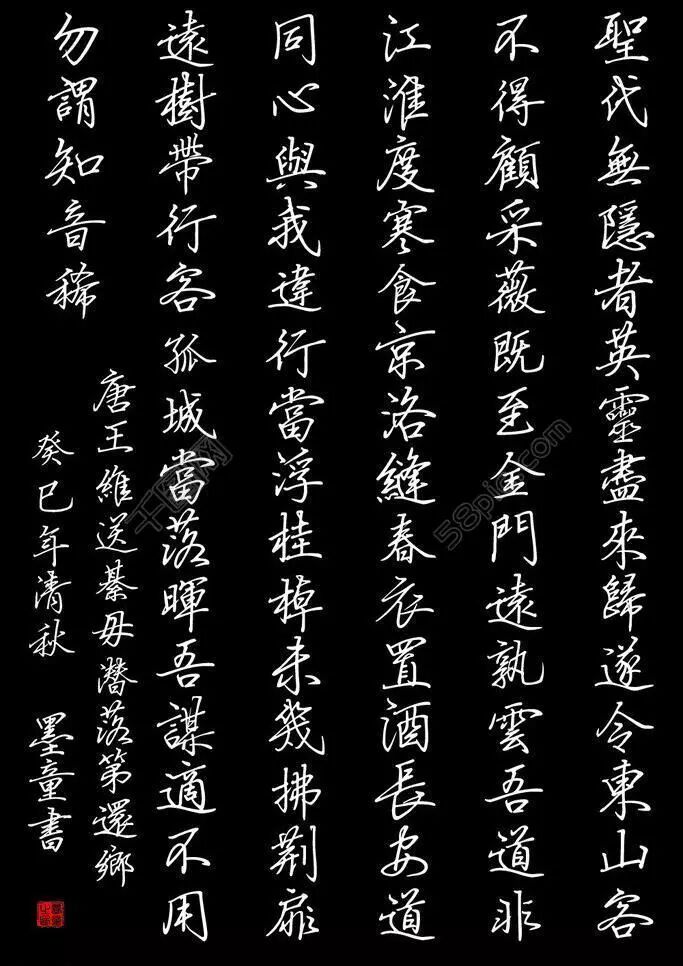 聖代無隱者英靈盡來歸遂令東山客
不得顧采薇既至金門遠孰雲吾道非
江淮度寒食京洛縫春衣置酒長安道
同心與我違行當浮桂棹未幾拂荆扉
遠樹帶行客孤城當落暉吾謀適不用
勿謂知音稀
唐王維送綦毋潛落第還鄉
癸巳年清秋 墨童書
千图网
58pic.com